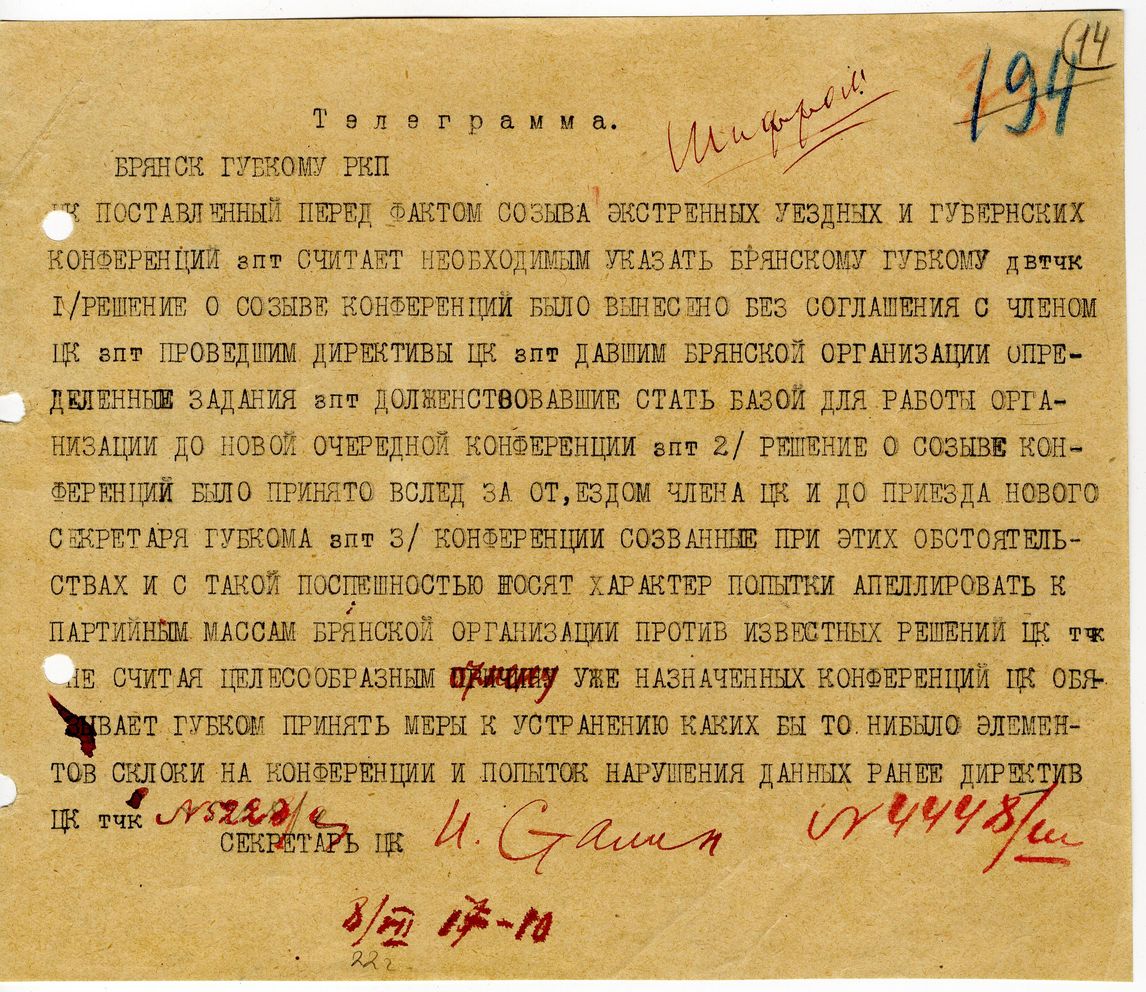 14
194
Телеграмма.
Шифром
БРЯНСК ГУБКОМУ РКП
ЦК ПОСТАВЛЕННЫЙ ПЕРЕД ФАКТОМ СОЗЫВА ЭКСТРЕННЫХ УЕЗДНЫХ И ГУБЕРНСКИХ
КОНФЕРЕНЦИЙ зпт СЧИТАЕТ НЕОБХОДИМЫМ УКАЗАТЬ БРЯНСКОМУ ГУБКОМУ двтчк
I/РЕШЕНИЕ О СОЗЫВЕ КОНФЕРЕНЦИЙ БЫЛО ВЫНЕСЕНО БЕЗ СОГЛАШЕНИЯ С ЧЛЕНОМ
ЦК зпт ПРОВЕДШИМ ДИРЕКТИВЫ ЦК зпт ДАВШИМ БРЯНСКОЙ ОРГАНИЗАЦИИ ОПРЕ-
ДЕЛЕННЫЕ ЗАДАНИЯ зпт ДОЛЖЕНСТВОВАВШИЕ СТАТЬ БАЗОЙ ДЛЯ РАБОТЫ ОРГА-
НИЗАЦИИ ДО НОВОЙ ОЧЕРЕДНОЙ КОНФЕРЕНЦИИ зпт 2/ РЕШЕНИЕ О СОЗЫВЕ КОН-
ФЕРЕНЦИЙ БЫЛО ПРИНЯТО ВСЛЕД ЗА ОТ,ЕЗДОМ ЧЛЕНА ЦК И ДО ПРИЕЗДА НОВОГО
СЕКРЕТАРЯ ГУБКОМА зпт 3/ КОНФЕРЕНЦИИ СОЗВАННЫЕ ПРИ ЭТИХ ОБСТОЯТЕЛЬ-
СТВАХ И С ТАКОЙ ПОСПЕШНОСТЬЮ НОСЯТ ХАРАКТЕР ПОПЫТКИ АПЕЛЛИРОВАТЬ К
ПАРТИЙНЫМ МАССАМ БРЯНСКОЙ ОРГАНИЗАЦИИ ПРОТИВ ИЗВЕСТНЫХ РЕШЕНИЙ ЦК тчк
НЕ СЧИТАЯ ЦЕЛЕСООБРАЗНЫМ отмену УЖЕ НАЗНАЧЕННЫХ КОНФЕРЕНЦИЙ ЦК ОБЯ-
ЗЫВАЕТ ГУБКОМ ПРИНЯТЬ МЕРЫ К УСТРАНЕНИЮ КАКИХ БЫ ТО НИБЫЛО ЭЛЕМЕН-
ТОВ СКЛОКИ НА КОНФЕРЕНЦИИ И ПОПЫТОК НАРУШЕНИЯ ДАННЫХ РАНЕЕ ДИРЕКТИВ
ЦК тчк
СЕКРЕТАРЬ ЦК И. Сталин № 4448/ш
8/VIII 17-10
22г